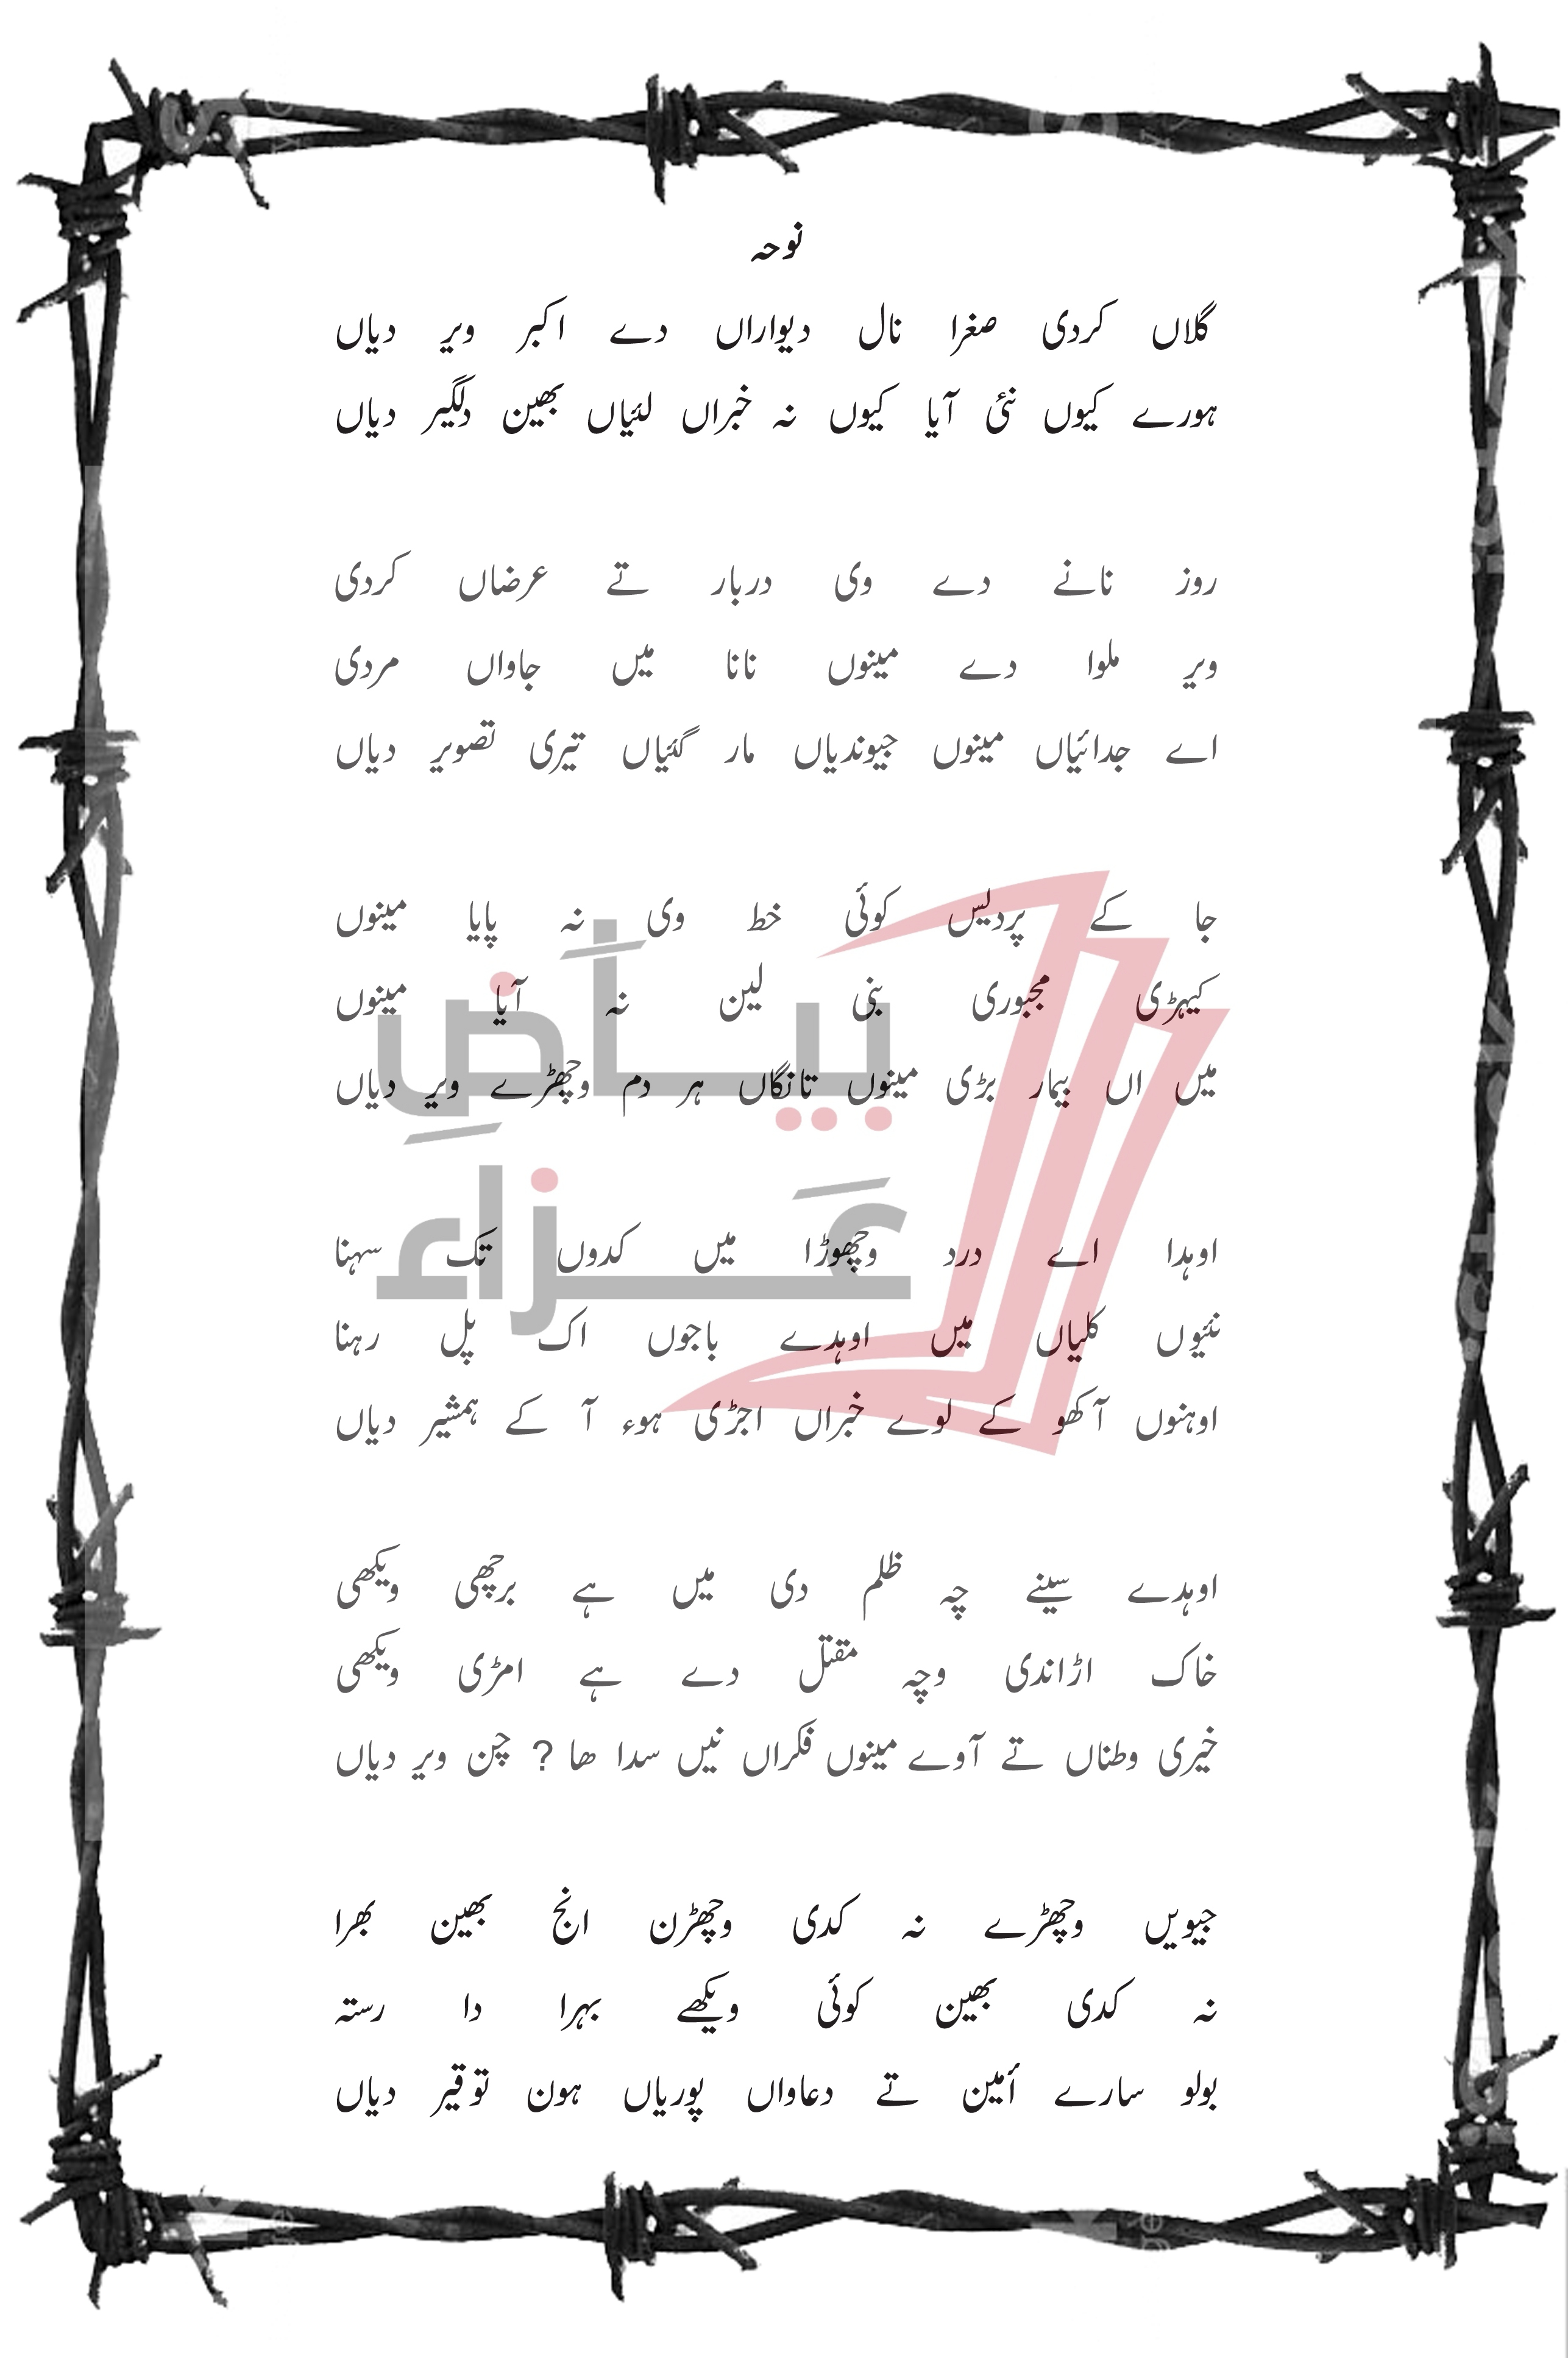 نوحہ
گلاں کردی صغرا نال دیواراں دے اکبر ویر دیاں
ہورے کیوں نئی آیا کیوں نہ خبراں لئیاں بھین دلگیر دیاں
روز نانے دے وی دربار تے عرضاں کردی
ویر ملوا دے مینوں نانا میں جاواں مردی
اے جدائیاں مینوں جیوندیاں مار گئیاں تیری تصویر دیاں
جا کے پردیس کوئی خط وی نہ پایا مینوں
کیہڑی مجبوری بنی لین نہ آیا مینوں
میں اں بیمار بڑی مینوں تانگاں ہر دم وچھڑے ویر دیاں
بیاضِ
عَزاء
اوہدا اے درد وچھوڑا میں کدوں تک سہنا
نئیوں کلیاں میں اوہدے باجوں اک پل رہنا
اوہنوں آکھو کے لوے خبراں اجڑی ہوء آ کے ہمشیر دیاں
اوہدے سینے چہ ظلم دی میں ہے برچھی ویکھی
خاک اڑاندی وچہ مقتل دے ہے امڑی ویکھی
خیری وطناں تے آوے مینوں فکراں نیں سدا ھا ? چن ویر دیاں
جیویں وچھڑے نہ کدی وچھڑن انج بھین بھرا
نہ کدی بھین کوئی ویکھے بہرا دا رستہ
بولو سارے أمین تے دعاواں پوریاں ہون توقیر دیاں